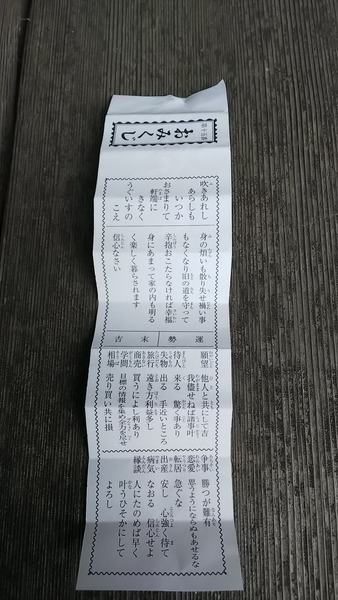 第十五番
おみくじ
吹きあれし
あらしも
いつか
おさまりて
軒端に
きなく
うぐいすの
こえ
身の煩いも散り失せ禍い事
もなくなり旧の道を守って
辛抱おこたらなければ幸福
身にあまって家の内も明る
く楽しく暮らされます
信心なさい
運勢 末吉
願望 他人と共にして吉
我儘せねば諸事叶
待人 来る 驚く事あり
失物 出る 手近いところ
旅行 遠き方利益多し
商売 買うによし利あり
学問 目標の情報を集め全力を尽せ
相場 売り買い共に損
争事 勝つが難有
恋愛 思うようにならぬもあせるな
転居 急ぐな
出産 安し 心強く待て
病気 なおる 信心せよ
縁談 人にたのめば早く
叶うひそかにして
よろし